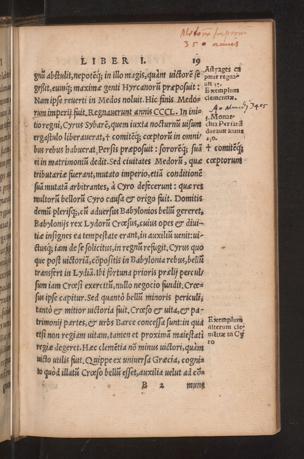 Medorum imperium
350 annos
LIBER I. 19
gnũ abstulit, nepotẽq; in illo magis, quàm uictorẽ se
gessit, eumq; maximæ genti Hyrcanorũ præposuit:
Nam ipse reuerti in Medos noluit. Hic finis Medo
rum imperij fuit, Regnauerunt annis CCCL. In ini-
tio regni, Cyrus Sybarẽ, quem iuxta nocturnũ uisum
ergastulo liberauerat, † comitẽq; cœptorũ in omni-
bus rebus habuerat, Persis præposuit: sororẽq; suã
ei in matrimoniũ dedit. Sed ciuitates Medorũ, quæ
tributariæ fuerant, mutato imperio, etiã conditionẽ
suã mutatã arbitrantes, à Cyro defecerunt: quæ res
multorũ bellorũ Cyro causa & origo fuit. Domitis
demũ plerisq;, cũ aduersus Babylonios bellũ gereret,
Babylonijs rex Lydorũ Crœsus, cuius opes & diui-
tiæ insignes ea tempestate erant, in auxiliũ uenit: ui-
ctusq;, iam de se solicitus, in regnũ refugit, Cyrus quo
que post uictoriã, cõpositis in Babylonia rebus, bellũ
transfert in Lydiã. Ibi fortuna prioris prælij percul-
sum iam Crœsi exercitũ, nullo negocio fundit, Crœ-
sus ipse capitur. Sed quantò bellũ minoris periculi,
tantò & mitior uictoria fuit, Crœso & uita, & pa-
trimonij partes, & urbs Barce concessa sunt: in qua
etsi non regiam uitam, tamen et proximã maiestati
regiæ degeret. Hæc clemẽtia nõ minus uictori, quàm
uicto utilis fuit. Quippe ex uniuersa Græcia, cogni-
to quòd illatũ Crœso bellũ esset, auxilia uelut ad cõ-
B 2 mune
Astyages
Exemplum
clementiæ.
† comitẽq;
cœptorum
Exemplum
alterum cle-
mẽtiæ in Cy
ro